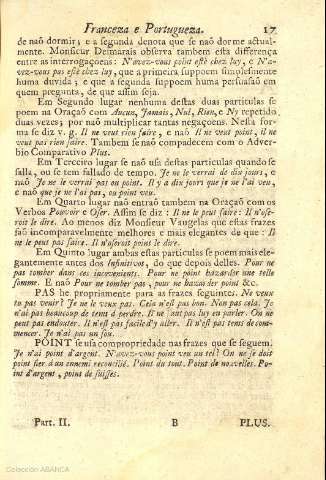 Franceza e Portugueza. 17
de naõ dormir; e a segunda denota que se naõ dorme actual-
mente. Monsieur Desmarais observa tambem esta differença
entre as interrogaçoens: N'avez-vous point esté chez luy, e N'a-
vez-vous pas esté chez luy, que a primeira suppoem simplesmente
huma duvida; e a segunda suppoem huma persuasaõ em
quem pregunta, de que assim seja.
Em Segundo lugar nenhuma destas duas particulas se
poem na Oraçaõ com Aucun, Jamais, Nul, Rien, e Ny repetido
duas vezes; por naõ multiplicar tantas negaçoens. Nesta for-
ma se diz v. g. Il ne veut rien faire, e naõ Il ne veut point, il ne
veut pas rien faire. Tambem se naõ compadecem com o Adver-
bio Comparativo Plus.
Em Terceiro lugar se naõ usa destas particulas quando se
falla, ou se tem fallado de tempo. Je ne le verrai de dix jours, e
naõ Je ne le verrai pas ou point. Il y a dix jours que je ne l'ai veu,
e naõ que je ne l'ai pas, ou point veu.
Em Quarto lugar naõ entraõ tambem na Oraçaõ com os
Verbos Pouvoir e Oser. Assim se diz: Il ne le peut faire: Il n'ose-
roit le dire. Ao menos diz Monsieur Vaugelas que estas frazes
saõ incomparavelmente melhores e mais elegantes de que: Il
ne le peut pas faire. Il n'oseroit point le dire.
Em Quinto lugar ambas estas particulas se poem mais ele-
gantemente antes dos Infinitivos, do que depois delles. Pour ne
pas tomber dans ces inconvenients. Pour ne point hazarder une telle
somme. E naõ Pour ne tomber pas, pour ne hazarder point &c.
PAS he propriamente para as frazes seguintes. Ne veux
tu pas venir? Je ne le veux pas. Cela n'est pas bon. Non pas cela. Je
n'ai pas beaucoup de tems à perdre. Il ne faut pas luy en parler. On ne
peut pas endouter. Il n'est pas facile d'y aller. Il n'est pas tems de com-
mencer. Je n'ai pas un sou.
POINT se usa compropriedade nas frazes que se seguem.
Je n'ai point d'argent. N'avez-vous point veu un tel? On ne se doit
point fier à un ennemi reconcilié. Point du tout. Point de nouvelles. Po-
int d'argent, point de suisses.
Part. II. B PLUS.
Colección ABANCA